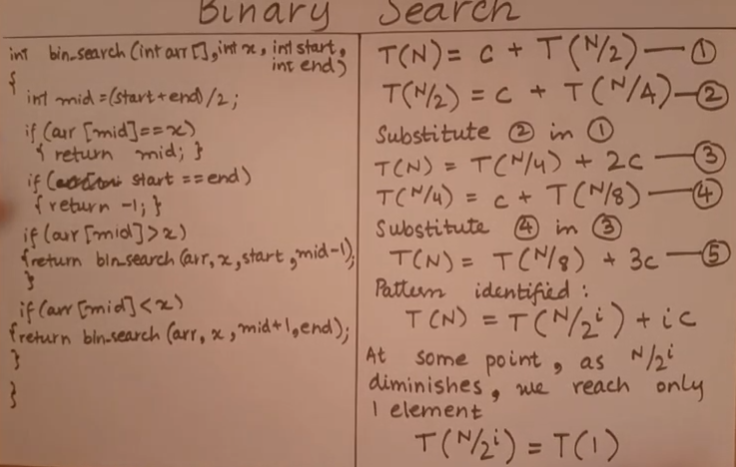 Binary Search
int bin_search (int arr[], int x, int start,
int end)
{
int mid = (start+end)/2;
if (arr [mid]==x)
{ return mid; }
if ( start ==end)
{ return -1; }
if (arr [mid]>x)
{return bin_search (arr, x, start, mid-1);
}
if (arr [mid]<x)
{return bin_search (arr, x, mid+1, end);
}
}
T(N) = c + T(N/2) — ①
T(N/2) = c + T(N/4) — ②
Substitute ② in ①
T(N) = T(N/4) + 2c — ③
T(N/4) = c + T(N/8) — ④
Substitute ④ in ③
T(N) = T(N/8) + 3c — ⑤
Pattern identified :
T(N) = T(N/2ⁱ) + ic
At some point, as N/2ⁱ
diminishes, we reach only
1 element
T(N/2ⁱ) = T(1)